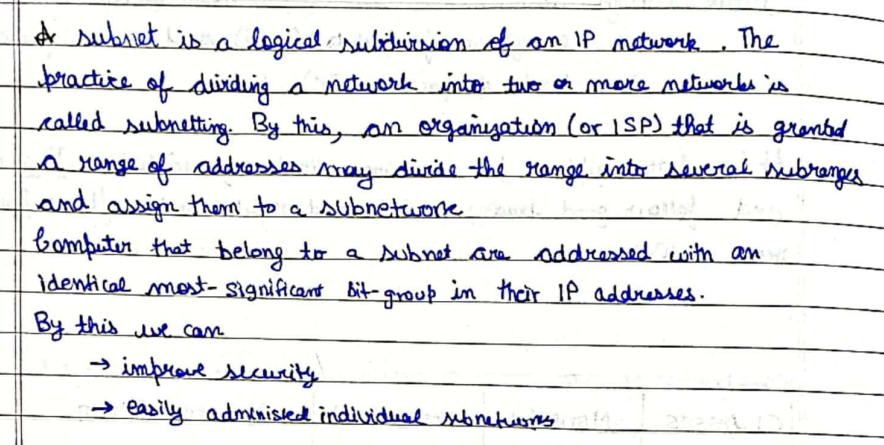 A subnet is a logical subdivision of an IP network. The
practice of dividing a network into two or more networks is
called subnetting. By this, an organization (or ISP) that is granted
a range of addresses may divide the range into several subranges
and assign them to a subnetwork
Computer that belong to a subnet are addressed with an
identical most-significant bit-group in their IP addresses.
By this we can
→ improve security
→ easily individual subnetworks